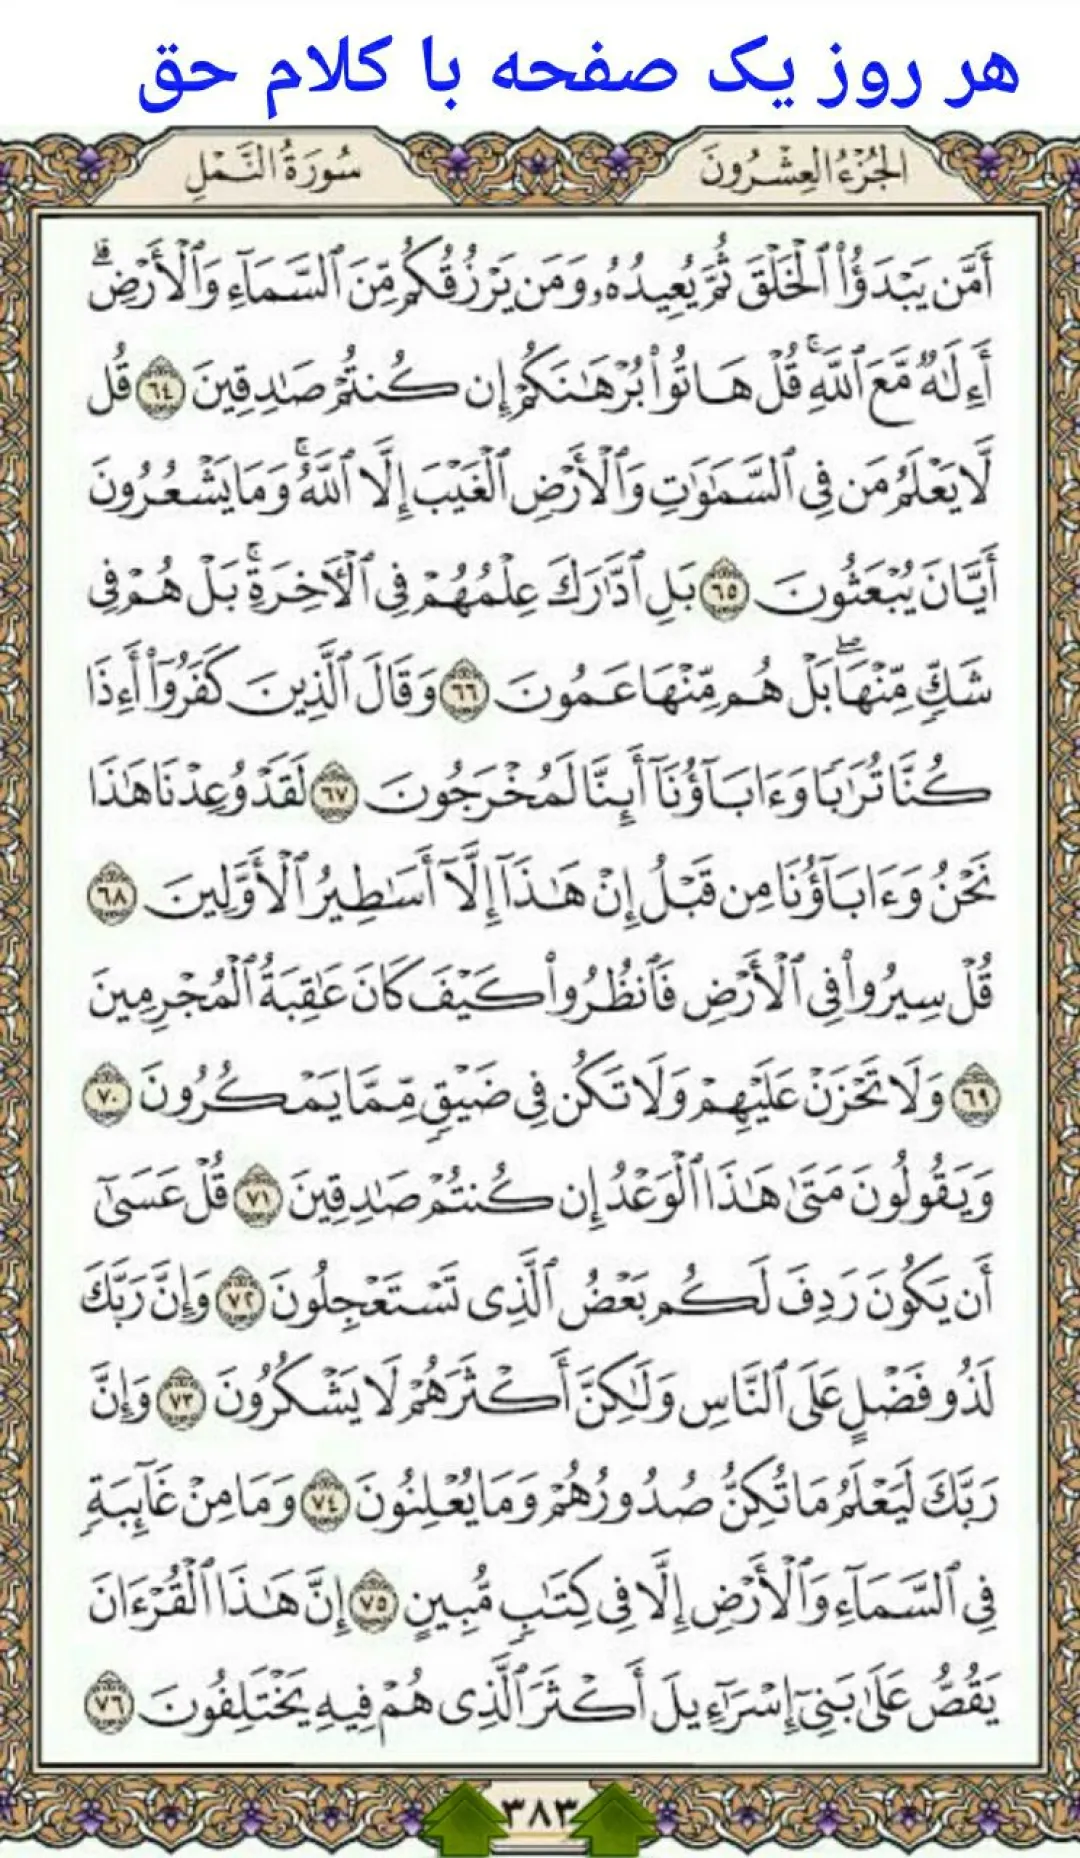 هر روز یک صفحه با کلام حق
الجُزْءُ العِشْرُونَ
سُورَةُ النَّمْلِ
أَمَّن يَبْدَؤُاْ ٱلْخَلْقَ ثُمَّ يُعِيدُهُۥ وَمَن يَرْزُقُكُم مِّنَ ٱلسَّمَآءِ وَٱلْأَرْضِۗ
أَءِلَٰهٌ مَّعَ ٱللَّهِۚ قُلْ هَاتُواْ بُرْهَٰنَكُمْ إِن كُنتُمْ صَٰدِقِينَ ٦٤ قُل
لَّا يَعْلَمُ مَن فِى ٱلسَّمَٰوَٰتِ وَٱلْأَرْضِ ٱلْغَيْبَ إِلَّا ٱللَّهُۚ وَمَا يَشْعُرُونَ
أَيَّانَ يُبْعَثُونَ ٦٥ بَلِ ٱدَّٰرَكَ عِلْمُهُمْ فِى ٱلْأَخِرَةِۚ بَلْ هُمْ فِى
شَكٍّ مِّنْهَاۖ بَلْ هُم مِّنْهَا عَمُونَ ٦٦ وَقَالَ ٱلَّذِينَ كَفَرُوٓاْ أَءِذَا
كُنَّا تُرَٰبًا وَءَابَآؤُنَآ أَئِنَّا لَمُخْرَجُونَ ٦٧ لَقَدْ وُعِدْنَا هَٰذَا
نَحْنُ وَءَابَآؤُنَا مِن قَبْلُ إِنْ هَٰذَآ إِلَّآ أَسَٰطِيرُ ٱلْأَوَّلِينَ ٦٨
قُلْ سِيرُواْ فِى ٱلْأَرْضِ فَٱنظُرُواْ كَيْفَ كَانَ عَٰقِبَةُ ٱلْمُجْرِمِينَ
٦٩ وَلَا تَحْزَنْ عَلَيْهِمْ وَلَا تَكُن فِى ضَيْقٍ مِّمَّا يَمْكُرُونَ ٧٠
وَيَقُولُونَ مَتَىٰ هَٰذَا ٱلْوَعْدُ إِن كُنتُمْ صَٰدِقِينَ ٧١ قُلْ عَسَىٰٓ
أَن يَكُونَ رَدِفَ لَكُم بَعْضُ ٱلَّذِى تَسْتَعْجِلُونَ ٧٢ وَإِنَّ رَبَّكَ
لَذُو فَضْلٍ عَلَى ٱلنَّاسِ وَلَٰكِنَّ أَكْثَرَهُمْ لَا يَشْكُرُونَ ٧٣ وَإِنَّ
رَبَّكَ لَيَعْلَمُ مَا تُكِنُّ صُدُورُهُمْ وَمَا يُعْلِنُونَ ٧٤ وَمَا مِنْ غَآئِبَةٍ
فِى ٱلسَّمَآءِ وَٱلْأَرْضِ إِلَّا فِى كِتَٰبٍ مُّبِينٍ ٧٥ إِنَّ هَٰذَا ٱلْقُرْءَانَ
يَقُصُّ عَلَىٰ بَنِىٓ إِسْرَٰٓءِيلَ أَكْثَرَ ٱلَّذِى هُمْ فِيهِ يَخْتَلِفُونَ ٧٦
٣٨٣